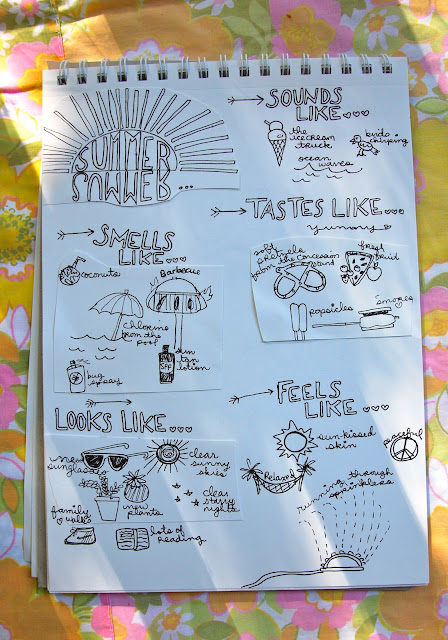 SUMMER
SUMMER
...
SOUNDS
LIKE...
the
icecream
truck
birds
chirping
ocean
waves
TASTES LIKE...
yummy
soft
pretzels
from
the concession
stand
fresh
fruit
popsicles
Smores
SMELLS
LIKE...
coconuts
Barbecue
chlorine
from the
pool
bug
spray
SPF
sun
tan
lotion
FEELS
LIKE...
sun-kissed
skin
peaceful
Relaxed
running through
sprinklers
LOOKS LIKE...
new
sunglasses
clear
sunny
skies
new
plants
clear
starry
nights
family
walks
lots of
reading